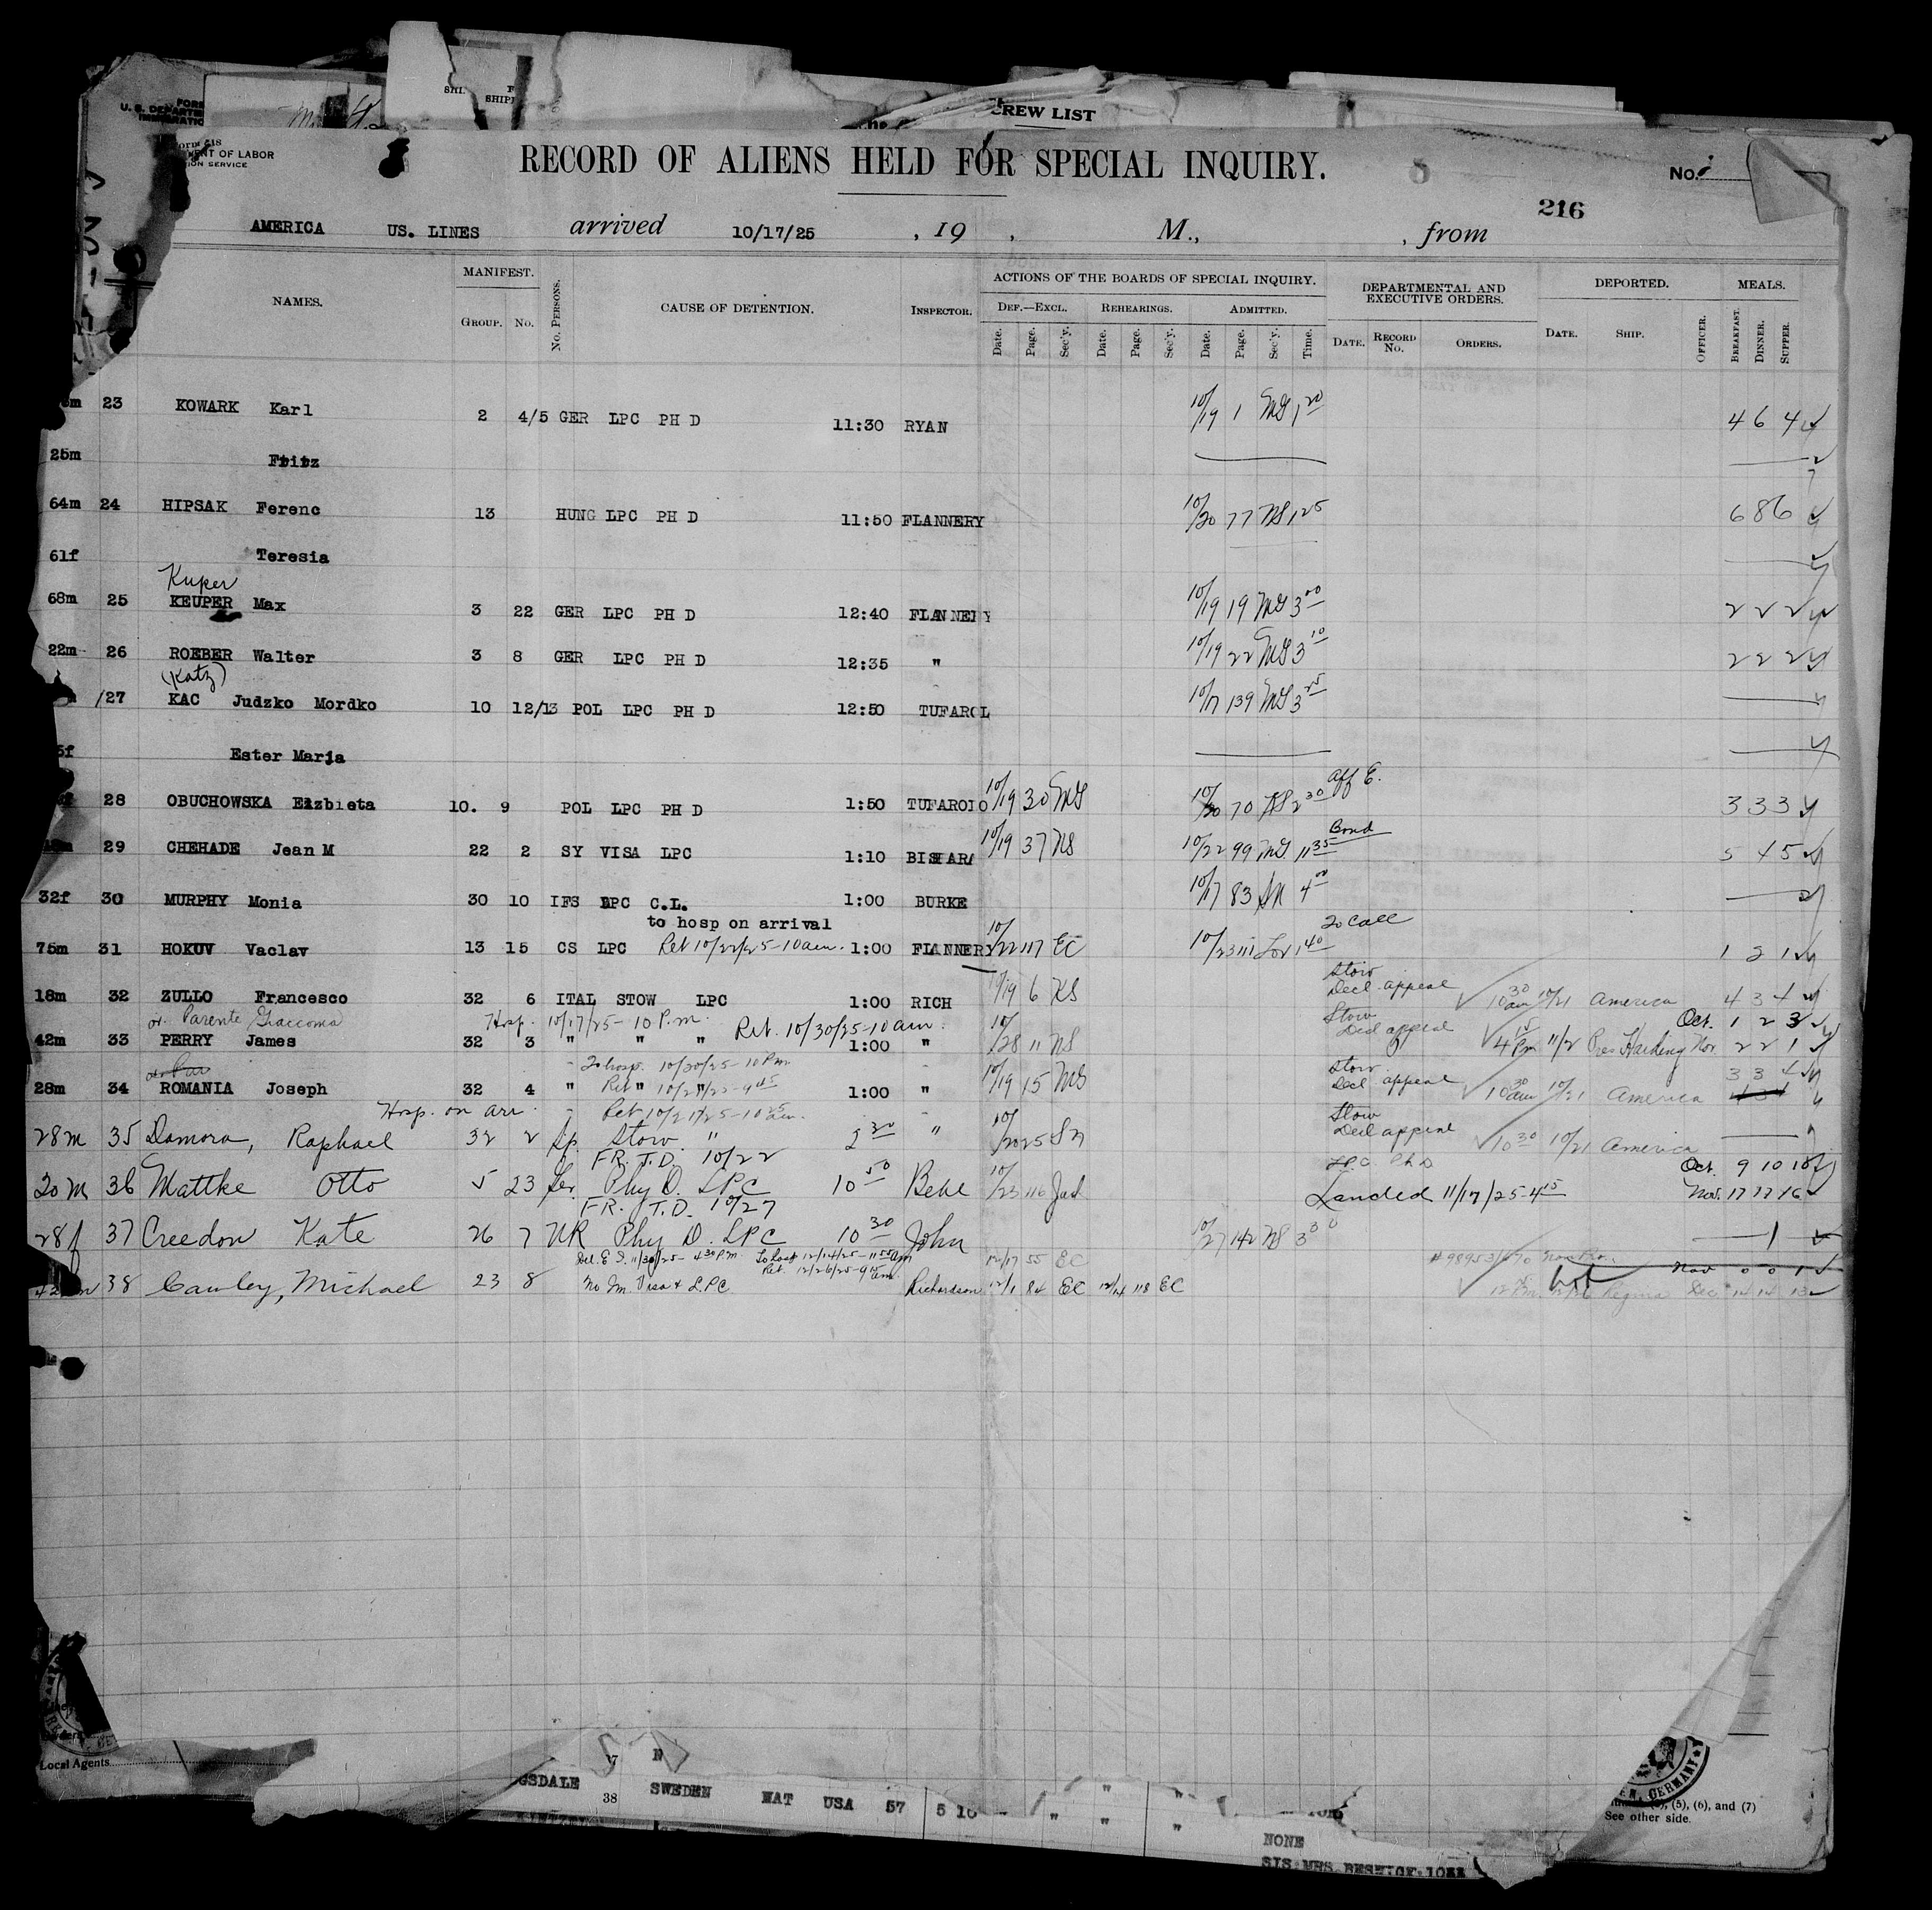 CREW LIST
SHIPP
U. S. DEPARTME
IMMIGRATIO
Form 418
MENT OF LABOR
ION SERVICE
RECORD OF ALIENS HELD FOR SPECIAL INQUIRY.
No.
216
AMERICA US. LINES arrived 10/17/25 , 19 , M., , from
NAMES. MANIFEST. GROUP. NO. NO. PERSONS. CAUSE OF DETENTION. INSPECTOR. ACTIONS OF THE BOARDS OF SPECIAL INQUIRY. DEF.—EXCL. Date. Page. Sec'y. REHEARINGS. Date. Page. Sec'y. ADMITTED. Date. Page. Sec'y. Time. DEPARTMENTAL AND EXECUTIVE ORDERS. DATE. RECORD NO. ORDERS. DEPORTED. DATE. SHIP. OFFICER. MEALS. BREAKFAST. DINNER. SUPPER.
23 KOWARK Karl 2 4/5 GER LPC PH D 11:30 RYAN 10/19 1 MG 1 20 4 6 4
25m Fritz
64m 24 HIPSAK Ferenc 13 HUNG LPC PH D 11:50 FLANNERY 10/20 77 NS 1 25 6 8 6
61f Teresia
Kuper
68m 25 KEUPER Max 3 22 GER LPC PH D 12:40 FLANNERY 10/19 19 MG 3 00 2 2 2
22m 26 ROEBER Walter 3 8 GER LPC PH D 12:35 " 10/19 22 MG 3 10 2 2 2
(Katz)
27 KAC Judzko Mordko 10 12/13 POL LPC PH D 12:50 TUFAROL 10/17 139 MG 3 25
5f Ester Marja
28 OBUCHOWSKA Elzbieta 10. 9 POL LPC PH D 1:50 TUFAROLO 10/19 30 MG 10/20 70 NS 2 30 aff E. 3 3 3
18m 29 CHEHADE Jean M 22 2 SY VISA LPC 1:10 BISHARA 10/19 37 NS 10/22 99 MG 11 35 Bond 5 4 5
32f 30 MURPHY Monia 30 10 IFS LPC C.L. 1:00 BURKE 10/17 83 SN 4 00
to hosp on arrival
75m 31 HOKUV Vaclav 13 15 CS LPC Ret 10/22/25-10am. 1:00 FLANNERY 10/22 117 EC 10/23 111 1 40 To Call 1 2 1
18m 32 ZULLO Francesco 32 6 ITAL STOW LPC 1:00 RICH 10/19 6 KS Stow Decl. appeal 10 30 am 10/21 America 4 3 4
or Parente Giaccomo Hosp. 10/17/25-10 P.m. Ret. 10/30/25-10am.
42m 33 PERRY James 32 3 " " " 1:00 " 10/28 11 NS Stow Decl appeal 4 15 Pm 11/2 Pres Harding Oct. 1 2 3 Nov. 2 2 1
To hosp. 10/30/25-10 Pm
28m 34 ROMANIA Joseph 32 4 " " Ret 1:00 " 10/19 15 MG Stow Decl appeal 10 30 am 10/21 America 3 3 4
Hosp. on arr. Ret 10/21/25-10 25 am.
28m 35 Damora, Raphael 32 2 Sp. Stow " 2 30 " 10/20 25 SN Stow Decl appeal 10 30 10/21 America
FR. T.D. 10/22
20m 36 Mattke Otto 5 23 Ger Phy D. LPC 10 50 Behl 10/23 116 LPC Ph D Landed 11/17/25-4 15 Oct. 9 10 10 Nov. 17 17 16
FR. T.D. 10/27
28f 37 Creedon Kate 26 7 NR Phy D. LPC 10 30 John 10/27 142 NS 3 30 1
Del. E I. 11/30/25-4 30 P.M. To hosp 12/14/25-11 55 am
Ret. 12/26/25-9 15 am. 12/17 55 EC Nov 0 0 1
42m 38 Cawley, Michael 23 8 No Im. Visa & LPC Richardson 12/1 84 EC 12/4 118 EC Regina Dec 14 14 13
Local Agents
GSDALE SWEDEN NAT USA 57 5 10
38
NONE
SIS MRS
EN, GERMANY
(5), (6), and (7)
See other side.